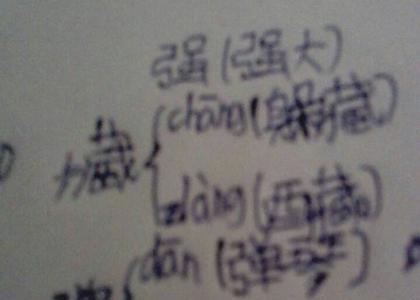 强(强大)
藏
chāng(躲藏)
zàng(西藏)
dān(弹琴)